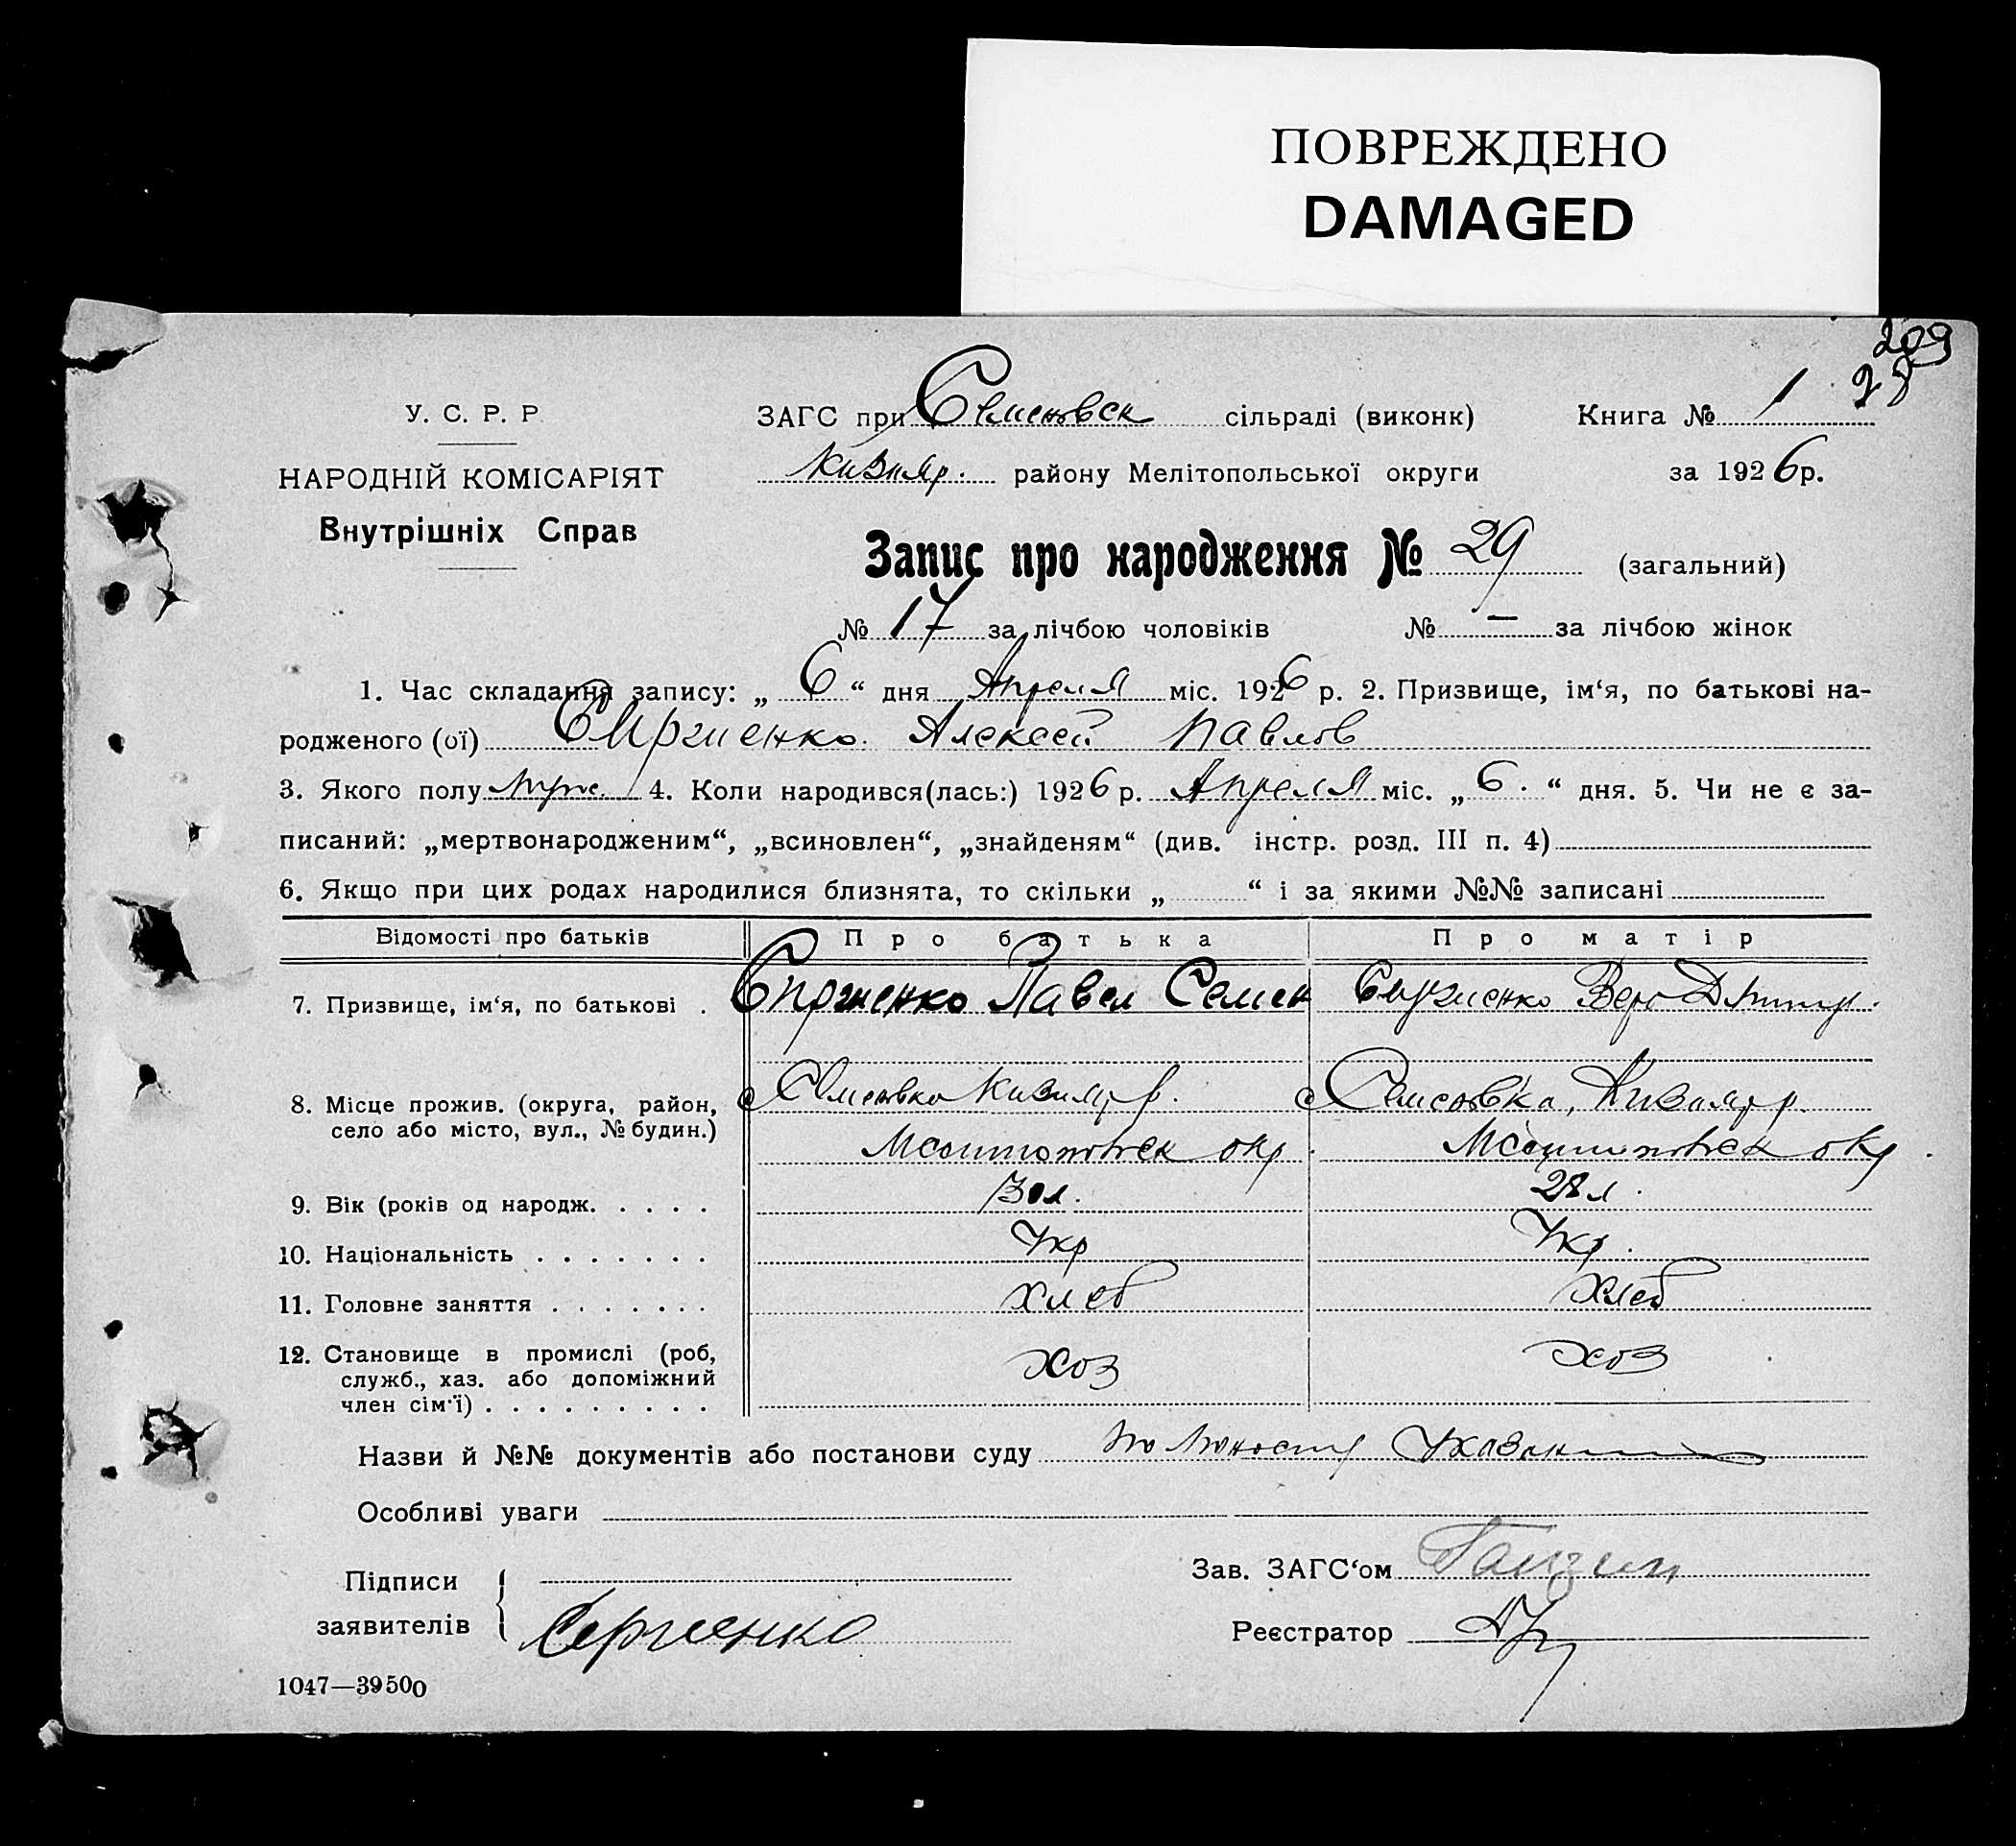 ПОВРЕЖДЕНО
DAMAGED
209
28
У. С. Р. Р.
НАРОДНІЙ КОМІСАРІЯТ
Внутрішніх Справ
ЗАГС при Семеновск сільраді (виконк) Книга № 1
Кизияр. району Мелітопольської округи за 1926 р.
Запис про народження № 29 (загальний)
№ 17 за лічбою чоловіків № — за лічбою жінок
1. Час складання запису: „ 6 “ дня Апреля міс. 1926 р. 2. Призвище, ім‘я, по батькові на-
родженого (ої) Сиргиенко Алексей Павлов
3. Якого полу муж. 4. Коли народився(лась:) 1926 р. Апреля міс. „ 6 . “ дня. 5. Чи не є за-
писаний: „мертвонародженим“, „всиновлен“, „знайденям“ (див. інстр. розд. III п. 4)
6. Якщо при цих родах народилися близнята, то скільки „ “ і за якими №№ записані
Відомості про батьків Про батька Про матір
7. Призвище, ім‘я, по батькові . Сиргиенко Павел Семен Сиргиенко Вера Дмитр.
8. Місце прожив. (округа, район, село або місто, вул., № будин.) с Семеовка Кизияр р. с Семеовка, Кизияр р.
Мелитоповск окр. Мелитоповск окр.
9. Вік (років од народж. . . . . 30 л. 28 л.
10. Національність . . . . . . . Укр Укр.
11. Головне заняття . . . . . . . хлеб хлеб
12. Становище в промислі (роб, служб., хаз. або допоміжний член сім'ї) . . . . . . . . . хоз хоз
Назви й №№ документів або постанови суду по
Особливі уваги
Підписи
заявителів Сергиенко
Зав. ЗАГС‘ом
Реєстратор
1047—39500